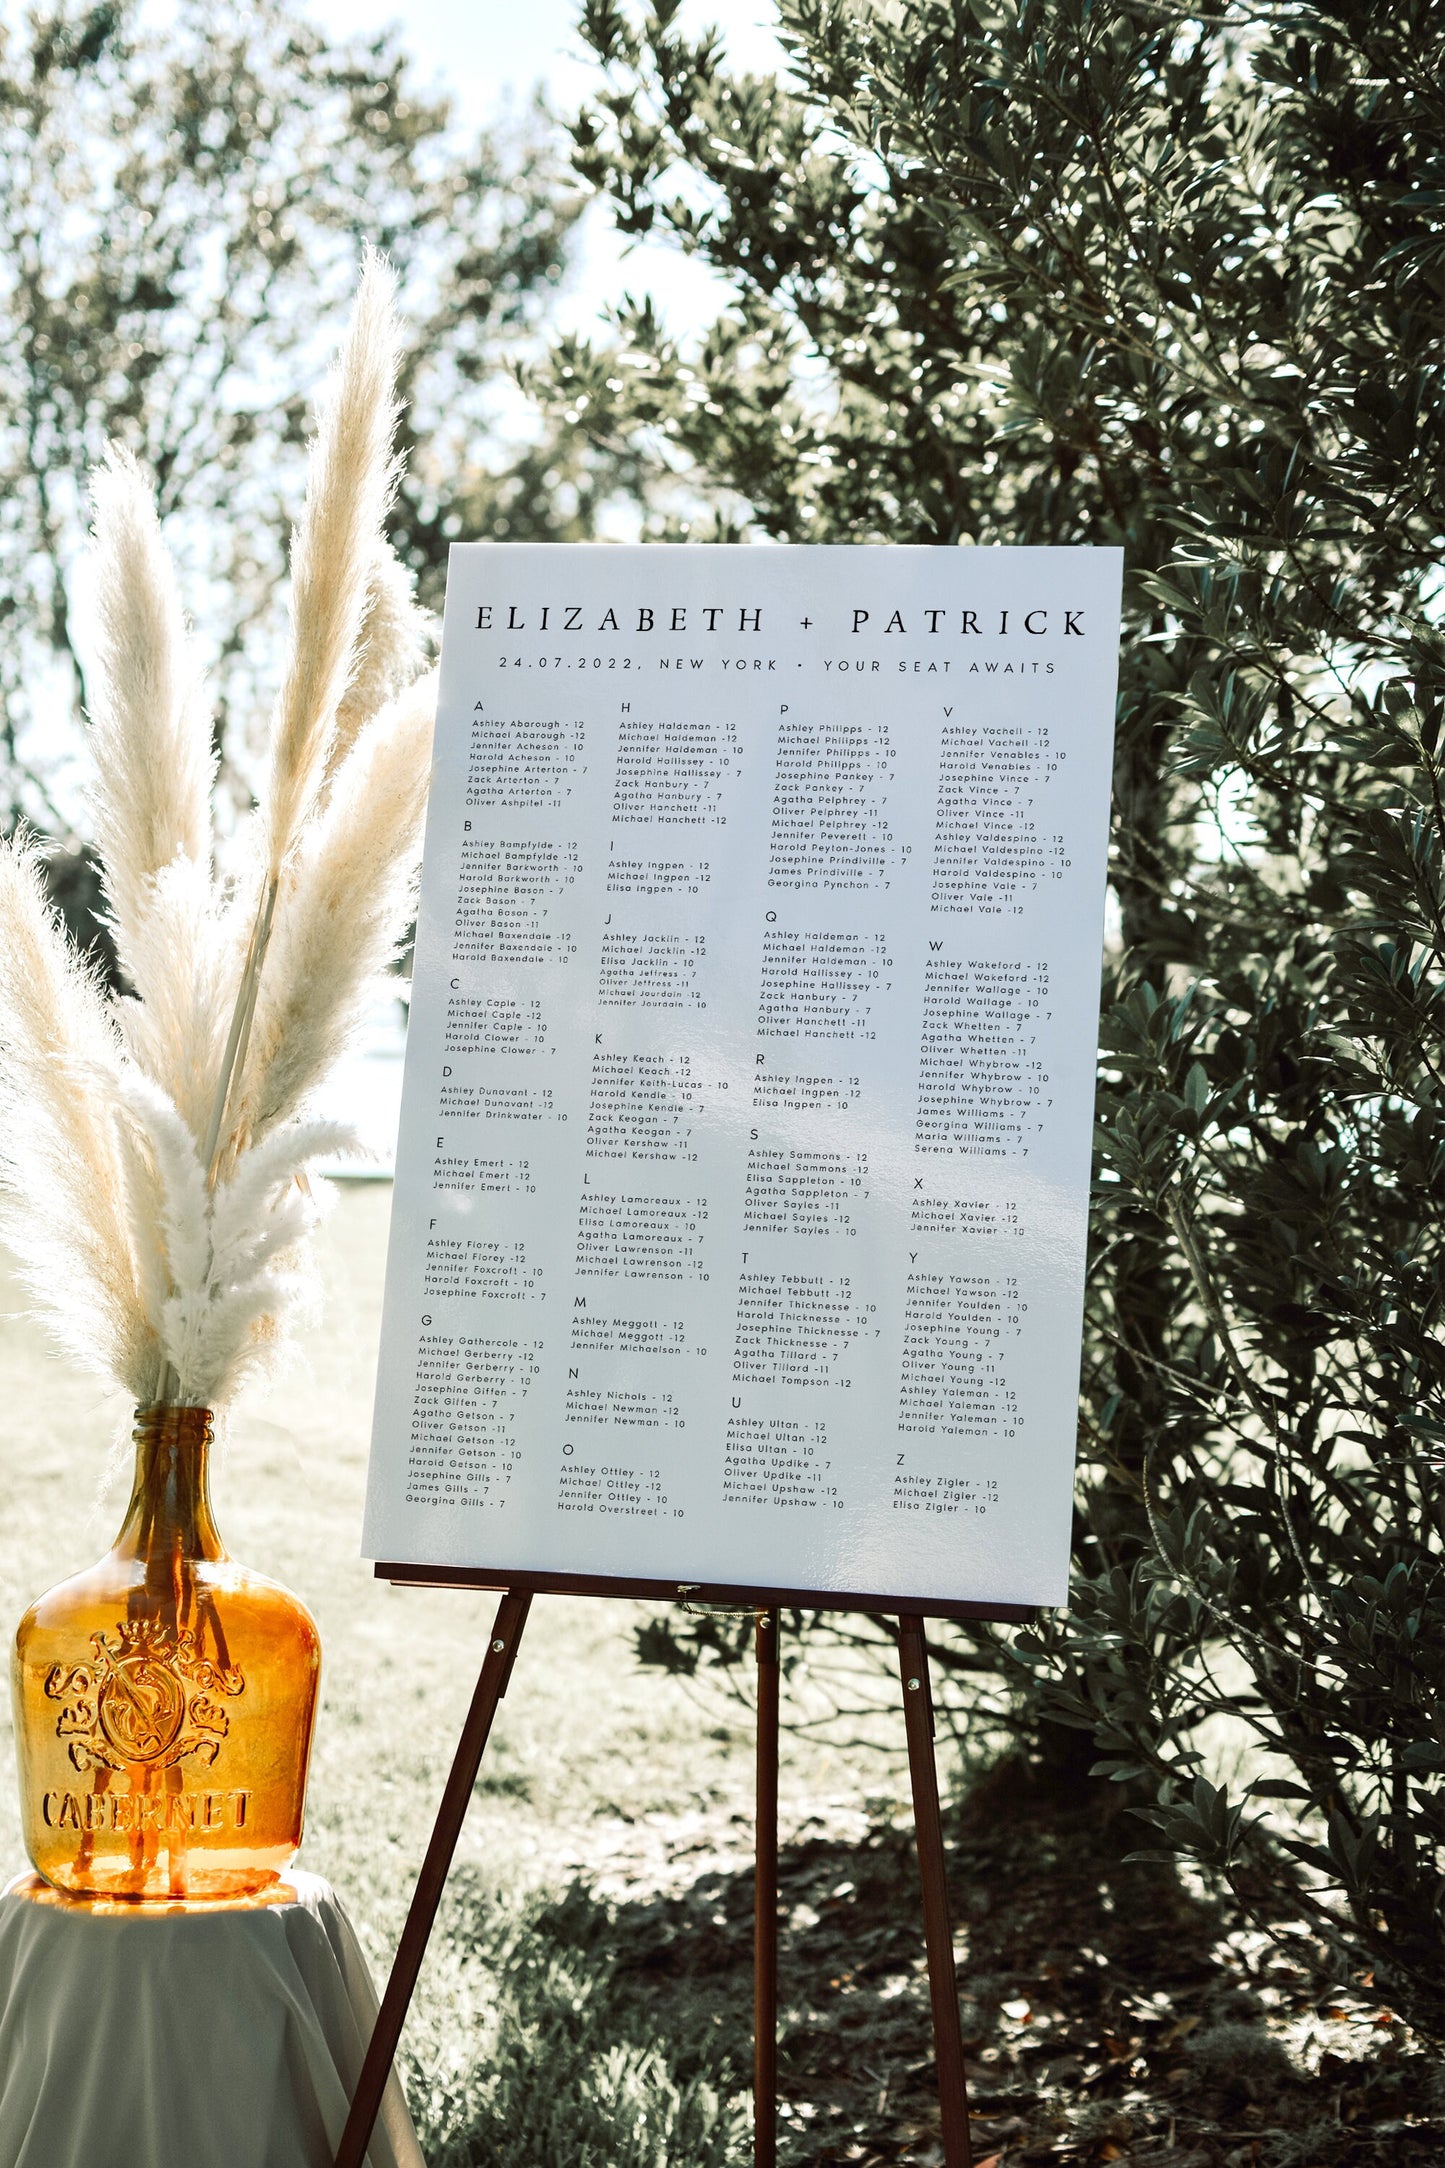 ELIZABETH + PATRICK
24.07.2022, NEW YORK • YOUR SEAT AWAITS
A
Ashley Abarough - 12
Michael Abarough -12
Jennifer Acheson - 10
Harold Acheson - 10
Josephine Arterton - 7
Zack Arterton - 7
Agatha Arterton - 7
Oliver Ashpitel -11
B
Ashley Bampfylde - 12
Michael Bampfylde -12
Jennifer Barkworth - 10
Harold Barkworth - 10
Josephine Bason - 7
Zack Bason - 7
Agatha Bason - 7
Oliver Bason -11
Michael Baxendale -12
Jennifer Baxendale - 10
Harold Baxendale - 10
C
Ashley Caple - 12
Michael Caple -12
Jennifer Caple - 10
Harold Clower - 10
Josephine Clower - 7
D
Ashley Dunavant - 12
Michael Dunavant -12
Jennifer Drinkwater - 10
E
Ashley Emert - 12
Michael Emert -12
Jennifer Emert - 10
F
Ashley Florey - 12
Michael Florey -12
Jennifer Foxcroft - 10
Harold Foxcroft - 10
Josephine Foxcroft - 7
G
Ashley Gathercole - 12
Michael Gerberry -12
Jennifer Gerberry - 10
Harold Gerberry - 10
Josephine Giffen - 7
Zack Giffen - 7
Agatha Getson - 7
Oliver Getson -11
Michael Getson -12
Jennifer Getson - 10
Harold Getson - 10
Josephine Gills - 7
James Gills - 7
Georgina Gills - 7
H
Ashley Haldeman - 12
Michael Haldeman -12
Jennifer Haldeman - 10
Harold Hallissey - 10
Josephine Hallissey - 7
Zack Hanbury - 7
Agatha Hanbury - 7
Oliver Hanchett -11
Michael Hanchett -12
I
Ashley Ingpen - 12
Michael Ingpen -12
Elisa Ingpen - 10
J
Ashley Jacklin - 12
Michael Jacklin -12
Elisa Jacklin - 10
Agatha Jeffress - 7
Oliver Jeffress -11
Michael Jourdain -12
Jennifer Jourdain - 10
K
Ashley Keach - 12
Michael Keach -12
Jennifer Keith-Lucas - 10
Harold Kendie - 10
Josephine Kendie - 7
Zack Keogan - 7
Agatha Keogan - 7
Oliver Kershaw -11
Michael Kershaw -12
L
Ashley Lamoreaux - 12
Michael Lamoreaux -12
Elisa Lamoreaux - 10
Agatha Lamoreaux - 7
Oliver Lawrenson -11
Michael Lawrenson -12
Jennifer Lawrenson - 10
M
Ashley Meggott - 12
Michael Meggott -12
Jennifer Michaelson - 10
N
Ashley Nichols - 12
Michael Newman -12
Jennifer Newman - 10
O
Ashley Ottley - 12
Michael Ottley -12
Jennifer Ottley - 10
Harold Overstreet - 10
P
Ashley Philipps - 12
Michael Philipps -12
Jennifer Philipps - 10
Harold Philipps - 10
Josephine Pankey - 7
Zack Pankey - 7
Agatha Pelphrey - 7
Oliver Pelphrey -11
Michael Pelphrey -12
Jennifer Peverett - 10
Harold Peyton-Jones - 10
Josephine Prindiville - 7
James Prindiville - 7
Georgina Pynchon - 7
Q
Ashley Haldeman - 12
Michael Haldeman -12
Jennifer Haldeman - 10
Harold Hallissey - 10
Josephine Hallissey - 7
Zack Hanbury - 7
Agatha Hanbury - 7
Oliver Hanchett -11
Michael Hanchett -12
R
Ashley Ingpen - 12
Michael Ingpen -12
Elisa Ingpen - 10
S
Ashley Sammons - 12
Michael Sammons -12
Elisa Sappleton - 10
Agatha Sappleton - 7
Oliver Sayles -11
Michael Sayles -12
Jennifer Sayles - 10
T
Ashley Tebbutt - 12
Michael Tebbutt -12
Jennifer Thicknesse - 10
Harold Thicknesse - 10
Josephine Thicknesse - 7
Zack Thicknesse - 7
Agatha Tillard - 7
Oliver Tillard -11
Michael Tompson -12
U
Ashley Ultan - 12
Michael Ultan -12
Elisa Ultan - 10
Agatha Updike - 7
Oliver Updike -11
Michael Upshaw -12
Jennifer Upshaw - 10
V
Ashley Vachell - 12
Michael Vachell -12
Jennifer Venables - 10
Harold Venables - 10
Josephine Vince - 7
Zack Vince - 7
Agatha Vince - 7
Oliver Vince -11
Michael Vince -12
Ashley Valdespino - 12
Michael Valdespino -12
Jennifer Valdespino - 10
Harold Valdespino - 10
Josephine Vale - 7
Oliver Vale -11
Michael Vale -12
W
Ashley Wakeford - 12
Michael Wakeford -12
Jennifer Wallage - 10
Harold Wallage - 10
Josephine Wallage - 7
Zack Whetten - 7
Agatha Whetten - 7
Oliver Whetten -11
Michael Whybrow -12
Jennifer Whybrow - 10
Harold Whybrow - 10
Josephine Whybrow - 7
James Williams - 7
Georgina Williams - 7
Maria Williams - 7
Serena Williams - 7
X
Ashley Xavier - 12
Michael Xavier -12
Jennifer Xavier - 10
Y
Ashley Yawson - 12
Michael Yawson -12
Jennifer Youlden - 10
Harold Youlden - 10
Josephine Young - 7
Zack Young - 7
Agatha Young - 7
Oliver Young -11
Michael Young -12
Ashley Yaleman - 12
Michael Yaleman -12
Jennifer Yaleman - 10
Harold Yaleman - 10
Z
Ashley Zigler - 12
Michael Zigler -12
Elisa Zigler - 10
CABERNET